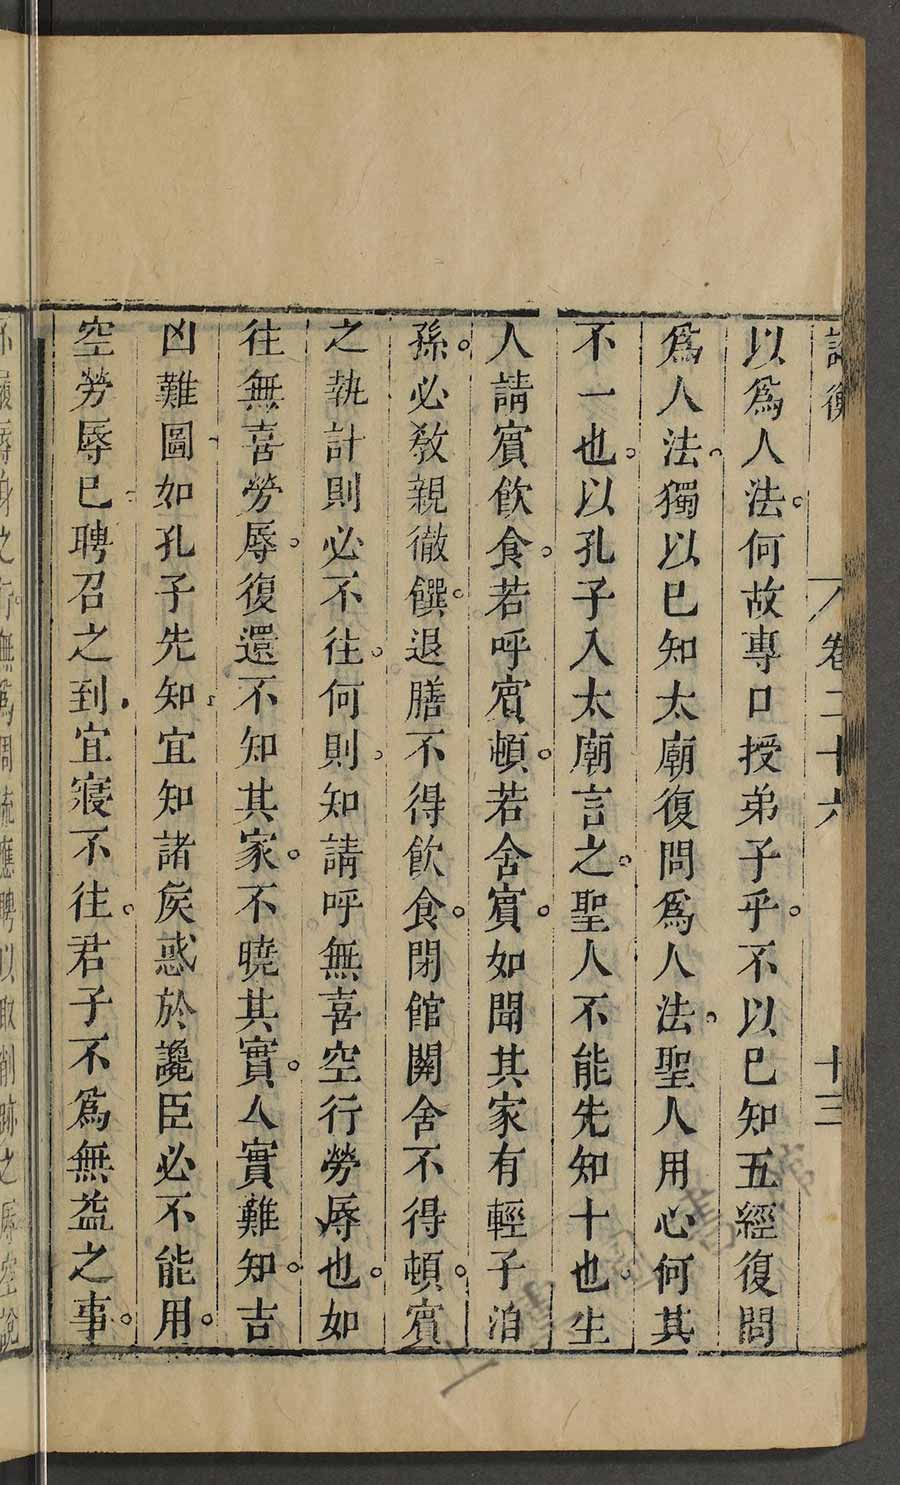 論衡 卷二十六 十三
以爲人法。何故專口授弟子乎。不以已知五經復問
爲人法。獨以已知太廟復問爲人法。聖人用心何其
不一也。以孔子入太廟言之。聖人不能先知十也。生
人請賓飲食。若呼賓頓。若舍賓。如聞其家有輕子洎
孫。必敎親徹饌。退膳不得飲食。閉館關舍不得頓。賓
之執計則必不往。何則。知請呼無喜空行勞辱也。如
往無喜勞辱。復還不知其家。不曉其實。人實難知。吉
凶難圖如孔子先知。宜知諸矦惑於讒臣必不能用。
空勞辱已。聘召之到宜寢不往。君子不爲無益之事。